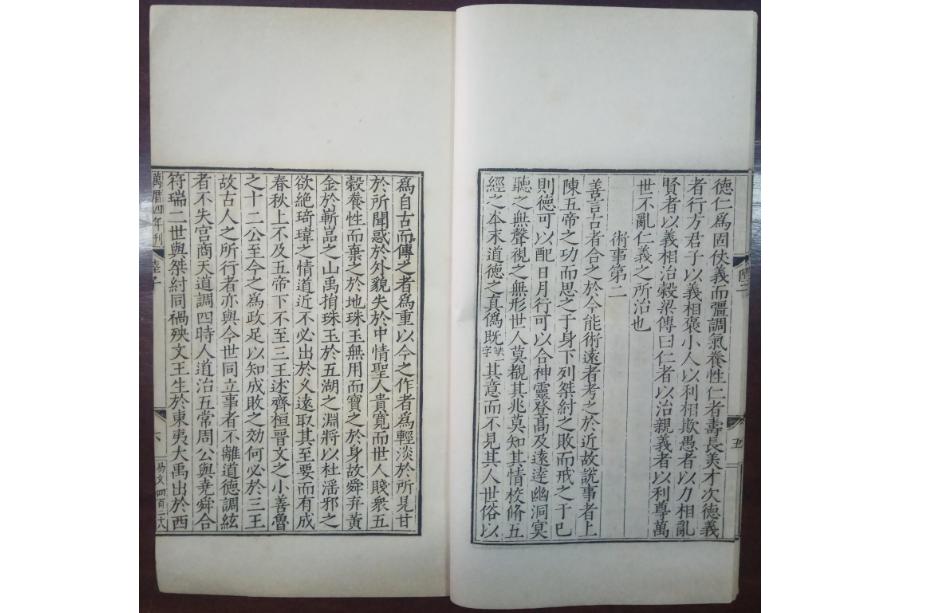 德仁爲固仗義而彊調氣養性仁者壽長美才次德義
者行方君子以義相褒小人以利相欺愚者以力相亂
賢者以義相治穀梁傳曰仁者以治親義者以利尊萬
世不亂仁義之所治也
術事第二
善言古者合之於今能術遠者考之於近故說事者上
陳五帝之功而思之于身下列桀紂之敗而戒之于已
則德可以配日月行可以合神靈登髙及遠逹幽洞冥
聽之無聲視之無形世人莫覩其兆莫知其情校脩五
經之本末道德之真僞既缺字其意而不見其人世俗以
五
爲自古而傳之者爲重以今之作者爲輕淡於所見甘
於所聞惑於外貌失於中情聖人貴寛而世人賤衆五
穀養性而棄之於地珠玉無用而寶之於身故舜弃黃
金於嶄嵓之山禹捐珠玉於五湖之淵將以杜滛邪之
欲絶琦瑋之情道近不必出於乆遠取其至要而有成
春秋上不及五帝下不至三王述齊桓晉文之小善魯
之十二公至今之爲政足以知成敗之効何必於三王
故古人之所行者亦與今世同立事者不離道德調絃
者不失宫商天道調四時人道治五常周公與堯舜合
符瑞二世與桀紂同禍殃文王生於東夷大禹出於西
萬曆四年刊
陸子
六
四百二十八